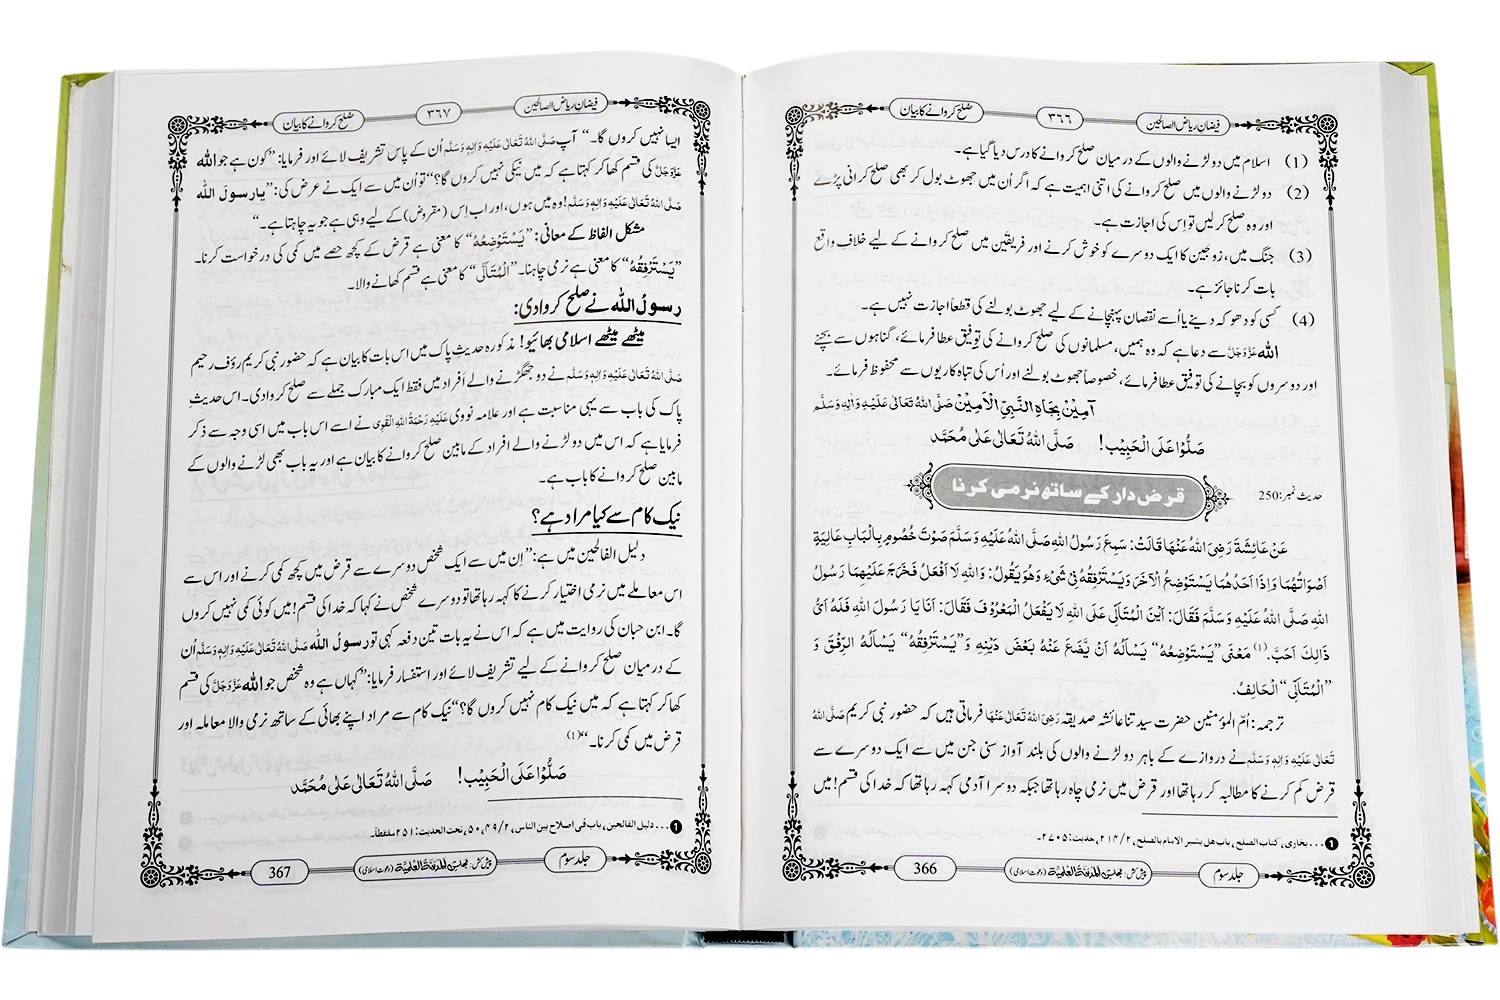 فیضانِ ریاض الصالحین
۳۶۶
صُلح کروانے کا بیان
(1) اسلام میں دو لڑنے والوں کے درمیان صلح کروانے کا درس دیا گیا ہے۔
(2) دو لڑنے والوں میں صلح کروانے کی اتنی اہمیت ہے کہ اگر اُن میں جھوٹ بول کر بھی صلح کرانی پڑے
اور وہ صلح کرلیں تو اِس کی اجازت ہے۔
(3) جنگ میں، زوجین کا ایک دوسرے کو خوش کرنے اور فریقین میں صلح کروانے کے لیے خلافِ واقع
بات کرنا جائز ہے۔
(4) کسی کو دھوکہ دینے یا اُسے نقصان پہنچانے کے لیے جھوٹ بولنے کی قطعاً اجازت نہیں ہے۔
اللہ عَزَّوَجَلَّ سے دعا ہے کہ وہ ہمیں، مسلمانوں کی صلح کروانے کی توفیق عطا فرمائے، گناہوں سے بچنے
اور دوسروں کو بچانے کی توفیق عطا فرمائے، خصوصاً جھوٹ بولنے اور اُس کی تباہ کاریوں سے محفوظ فرمائے۔
آمِیْن بِجَاہِ النَّبِیِّ الْاَمِیْن صَلَّی اللہُ تَعَالٰی عَلَیْہِ وَاٰلِہٖ وَسَلَّم
صَلُّوْا عَلَی الْحَبِیْب! صَلَّی اللہُ تَعَالٰی عَلٰی مُحَمَّد
حدیث نمبر:250
قرض دار کے ساتھ نرمی کرنا
عَنْ عَائِشَةَ رَضِیَ اللہُ عَنْهَا قَالَتْ: سَمِعَ رَسُوْلُ اللہِ صَلَّی اللہُ عَلَیْهِ وَسَلَّمَ صَوْتَ خُصُوْمٍ بِالْبَابِ عَالِیَةٍ
اَصْوَاتُهُمَا وَاِذَا اَحَدُهُمَا یَسْتَوْضِعُ الْآخَرَ وَیَسْتَرْفِقُهُ فِیْ شَیْءٍ وَهُوَ یَقُوْلُ: وَاللہِ لَا اَفْعَلُ فَخَرَجَ عَلَیْهِمَا رَسُوْلُ
اللہِ صَلَّی اللہُ عَلَیْهِ وَسَلَّمَ فَقَالَ: اَیْنَ الْمُتَاَلِّی عَلَی اللہِ لَا یَفْعَلُ الْمَعْرُوْفَ فَقَالَ: اَنَا یَا رَسُوْلَ اللہِ فَلَهُ اَیُّ
ذَالِكَ اَحَبَّ.(۱) مَعْنٰی”یَسْتَوْضِعُهُ“ یَسْاَلُهُ اَنْ یَّضَعَ عَنْهُ بَعْضَ دَیْنِهٖ وَ”یَسْتَرْفِقُهُ“ یَسْاَلُهُ الرِّفْقَ وَ
”الْمُتَاَلِّی“ الْحَالِفُ.
ترجمہ: اُمّ المؤمنین حضرت سیدتنا عائشہ صدیقہ رَضِیَ اللہُ تَعَالٰی عَنْہَا فرماتی ہیں کہ حضور نبی کریم صَلَّی اللہُ
تَعَالٰی عَلَیْہِ وَاٰلِہٖ وَسَلَّم نے دروازے کے باہر دو لڑنے والوں کی بلند آواز سنی جن میں سے ایک دوسرے سے
قرض کم کرنے کا مطالبہ کر رہا تھا اور قرض میں نرمی چاہ رہا تھا جبکہ دوسرا آدمی کہہ رہا تھا کہ خدا کی قسم! میں
❶...بخاری، کتاب الصلح، باب ھل یشیر الامام بالصلح، ۲/ ۲۱۴، حدیث: ۲۷۰۵۔
جلد سوم
پیش کش: مجلس المدینۃ العلمیۃ (دعوت اسلامی)
366
فیضانِ ریاض الصالحین
۳۶۷
صُلح کروانے کا بیان
ایسا نہیں کروں گا۔“ آپ صَلَّی اللہُ تَعَالٰی عَلَیْہِ وَاٰلِہٖ وَسَلَّم اُن کے پاس تشریف لائے اور فرمایا: ”کون ہے جو اللہ
عَزَّوَجَلَّ کی قسم کھا کر کہتا ہے کہ میں نیکی نہیں کروں گا؟“ تو اُن میں سے ایک نے عرض کی: ”یارسولَ اللہ
صَلَّی اللہُ تَعَالٰی عَلَیْہِ وَاٰلِہٖ وَسَلَّم! وہ میں ہوں، اور اب اِس (مقروض) کے لیے وہی ہے جو یہ چاہتا ہے۔“
مشکل الفاظ کے معانی: ”یَسْتَوْضِعُهُ“ کا معنی ہے قرض کے کچھ حصے میں کمی کی درخواست کرنا۔
”یَسْتَرْفِقُهُ“ کا معنی ہے نرمی چاہنا۔ ”الْمُتَاَلِّی“ کا معنی ہے قسم کھانے والا۔
رسولُ اللہ نے صلح کروادی:
میٹھے میٹھے اسلامی بھائیو! مذکورہ حدیثِ پاک میں اس بات کا بیان ہے کہ حضور نبی کریم رؤف رحیم
صَلَّی اللہُ تَعَالٰی عَلَیْہِ وَاٰلِہٖ وَسَلَّم نے دو جھگڑنے والے اَفراد میں فقط ایک مبارک جملے سے صلح کروادی۔ اس حدیثِ
پاک کی باب سے یہی مناسبت ہے اور علامہ نووی عَلَیْہِ رَحْمَۃُ اللہِ الْقَوِی نے اسے اس باب میں اسی وجہ سے ذکر
فرمایا ہے کہ اس میں دو لڑنے والے افراد کے مابین صلح کروانے کا بیان ہے اور یہ باب بھی لڑنے والوں کے
مابین صلح کروانے کا باب ہے۔
نیک کام سے کیا مراد ہے؟
دلیل الفالحین میں ہے: ”اِن میں سے ایک شخص دوسرے سے قرض میں کچھ کمی کرنے اور اس سے
اس معاملے میں نرمی اختیار کرنے کا کہہ رہا تھا تو دوسرے شخص نے کہا کہ خدا کی قسم! میں کوئی کمی نہیں کروں
گا۔ ابن حبان کی روایت میں ہے کہ اس نے یہ بات تین دفعہ کہی تو رسولُ اللہ صَلَّی اللہُ تَعَالٰی عَلَیْہِ وَاٰلِہٖ وَسَلَّم اُن
کے درمیان صلح کروانے کے لیے تشریف لائے اور استفسار فرمایا: ”کہاں ہے وہ شخص جو اللہ عَزَّوَجَلَّ کی قسم
کھا کر کہتا ہے کہ میں نیک کام نہیں کروں گا؟“ نیک کام سے مراد اپنے بھائی کے ساتھ نرمی والا معاملہ اور
قرض میں کمی کرنا۔“(۱)
صَلُّوْا عَلَی الْحَبِیْب! صَلَّی اللہُ تَعَالٰی عَلٰی مُحَمَّد
❶...دلیل الفالحین، باب فی اصلاح بین الناس، ۲/ ۴۹، ۵۰، تحت الحدیث: ۲۵۱ ملتقطاً۔
جلد سوم
پیش کش: مجلس المدینۃ العلمیۃ (دعوت اسلامی)
367